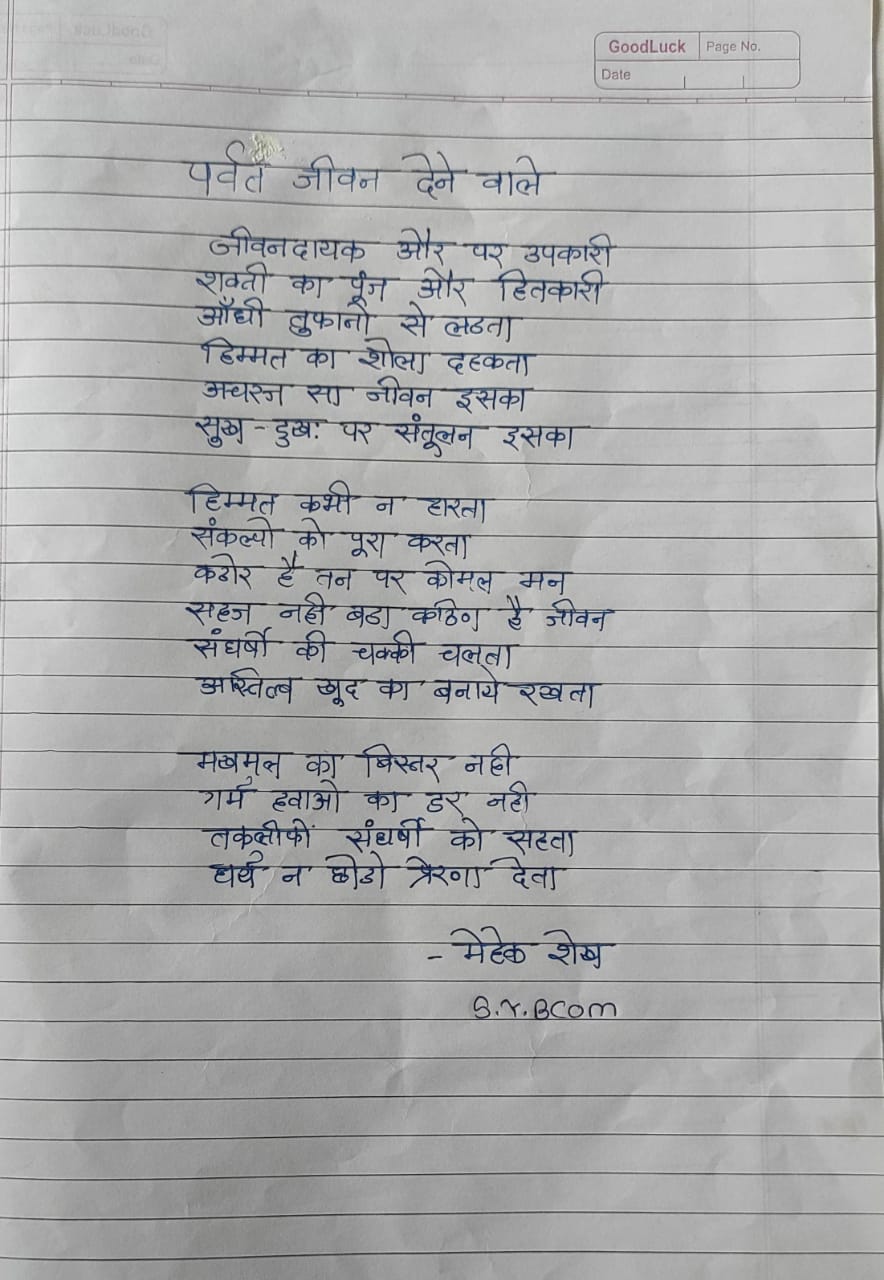 GoodLuck Page No.
Date
पर्वत जीवन देने वाले
जीवनदायक और पर उपकारी
शक्ती का पूंज और हितकारी
आँधी तुफानो से लढता
हिम्मत का शोला दहकता
अचरज सा जीवन इसका
सुख - दुखः पर संतूलन इसका
हिम्मत कभी न हारता
संकल्पो को पूरा करता
कठोर है तन पर कोमल मन
सहज नही बडा कठिण है जीवन
संघर्षो की चक्की चलता
अस्तित्व खूद का बनाये रखता
मखमल का बिस्तर नही
गर्म हवाओ का डर नही
तकलीफों संघर्षो को सहता
धर्य न छोडो प्रेरणा देता
- मेहेक शेख
S.Y.BCom